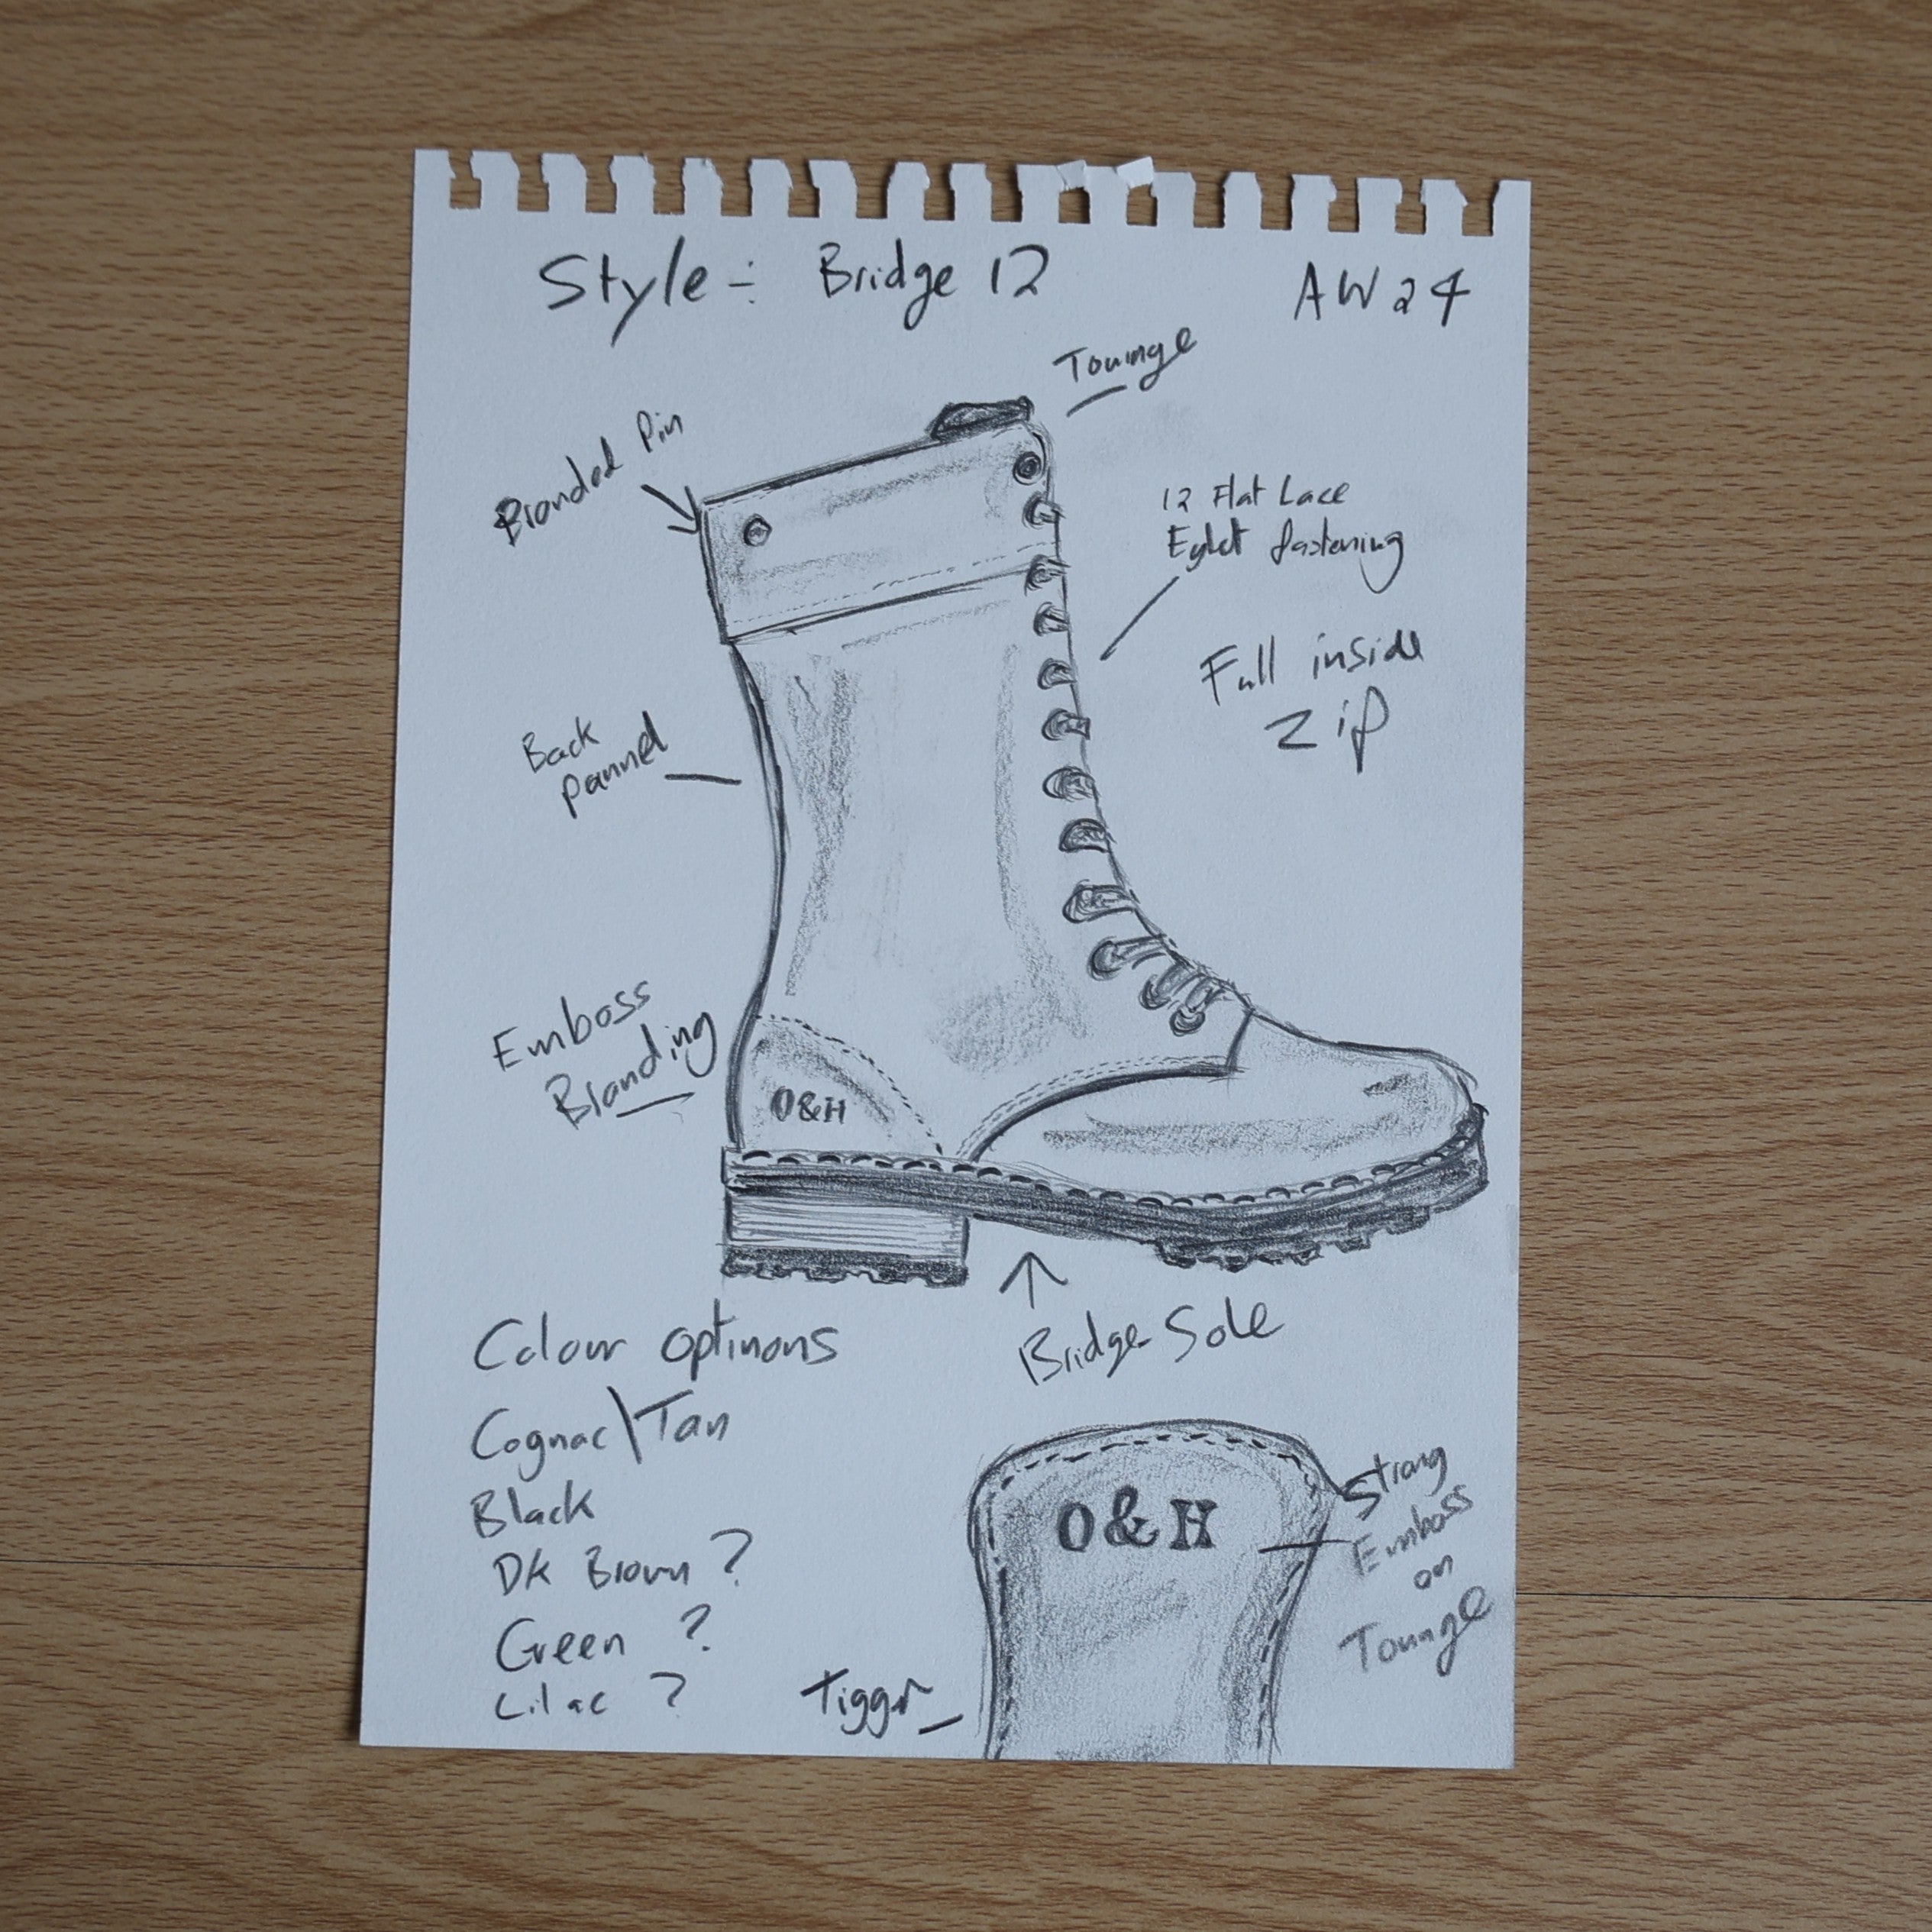 Style :- Bridge 12
AW24
Tounge
Branded Pin
12 Flat Lace
Eylet fastening
Full inside
Zip
Back
Pannel
Emboss
Branding
O&H
Bridge Sole
Colour optinons
Cognac\Tan
Black
DK Brown ?
Green ?
Lilac ?
O&H
Strong
Emboss
on
Tounge